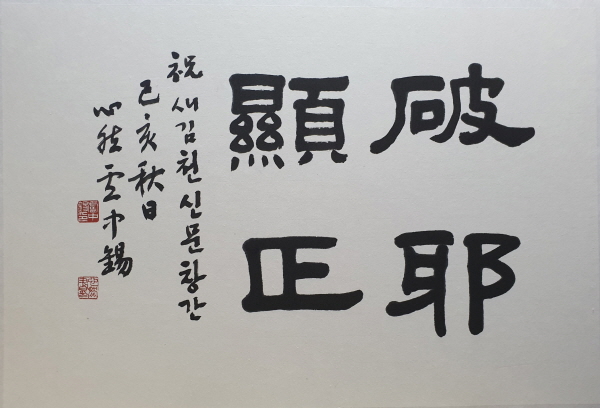 破耶
顯正
祝 새김천신문창간
己亥秋日
心 中錫